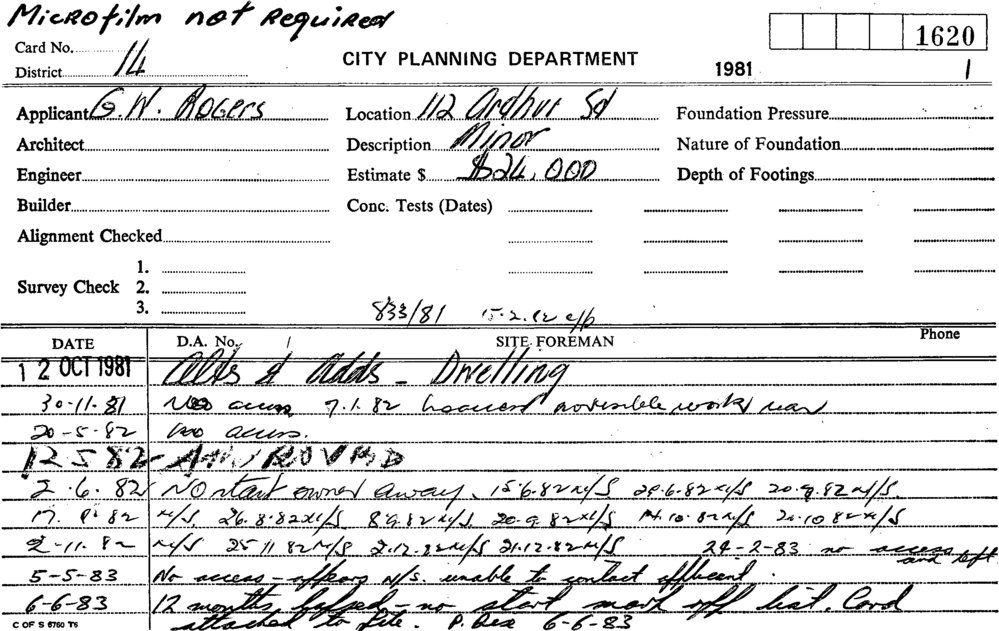 Microfilm not Required
Card No.
1620
District 14
CITY PLANNING DEPARTMENT
1981
1
Applicant G. W. ROGERS
Location 112 Ardhur Sd
Foundation Pressure
Architect
Description Minor
Nature of Foundation
Engineer
Estimate $ $24,000
Depth of Footings
Builder
Conc. Tests (Dates)
Alignment Checked
Survey Check
1.
2.
3.
833/81 15.2.82
DATE
D.A. No.
SITE FOREMAN
Phone
12 OCT 1981 Alts & Adds - Dwelling
30-11-81 No access 7.1.82 no access no visible work rear
20-5-82 no access.
12 5 82 - APPROVED
2.6.82 NO start owner away. 15.6.82 N/S 29.6.82 N/S 20.7.82 N/S.
17.8.82 N/S. 26.8.82 N/S 8.9.82 N/S. 20-9-82 N/S 14.10.82 N/S 20.10.82 N/S
2-11-82 N/S 25 11 82 N/S 2.12.82 N/S 21.12.82 N/S 24-2-83 no access and left.
5-5-83 No access - appears N/S. unable to contact
6-6-83 12 months lapsed - no start mark off list. Card
attached to file. P. 6-6-83
C OF S 6760 T6